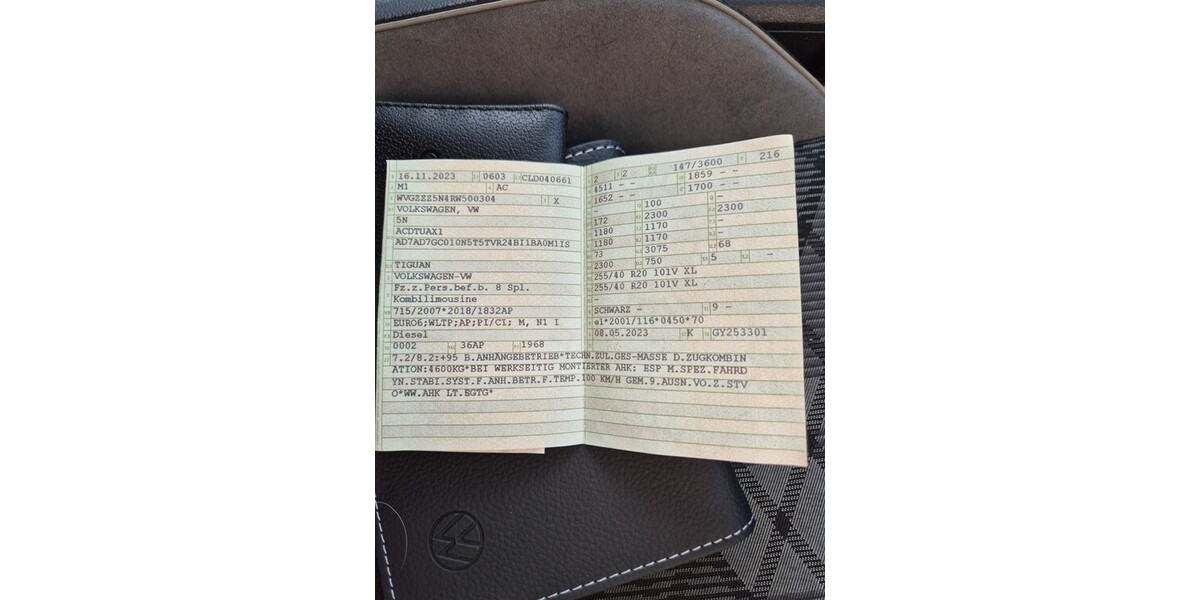 16.11.2023 0603 CLD040661
M1 AC
WVGZZZ5N4RW500304 X
VOLKSWAGEN, VW
5N
ACDTUAX1
AD7AD7GC010N5T5TVR24BI1BA0M1IS
TIGUAN
VOLKSWAGEN-VW
Fz.z.Pers.bef.b. 8 Spl.
Kombilimousine
715/2007*2018/1832AP
EURO6;WLTP;AP;PI/CI; M, N1 I
Diesel
0002 36AP 1968
2 2 147/3600 216
4511 - - 1859 - -
1652 - - 1700 - -
- 100 -
172 2300 2300
1180 1170 -
1180 1170 -
73 3075 68
2300 750 5 -
255/40 R20 101V XL
255/40 R20 101V XL
-
SCHWARZ - 9 -
e1*2001/116*0450*70
08.05.2023 K GY253301
7.2/8.2:+95 B.ANHÄNGEBETRIEB*TECHN.ZUL.GES-MASSE D.ZUGKOMBIN
ATION:4600KG*BEI WERKSEITIG MONTIERTER AHK: ESP M.SPEZ.FAHRD
YN.STABI.SYST.F.ANH.BETR.F.TEMP.100 KM/H GEM.9.AUSN.VO.Z.STV
O*WW.AHK LT.EGTG*